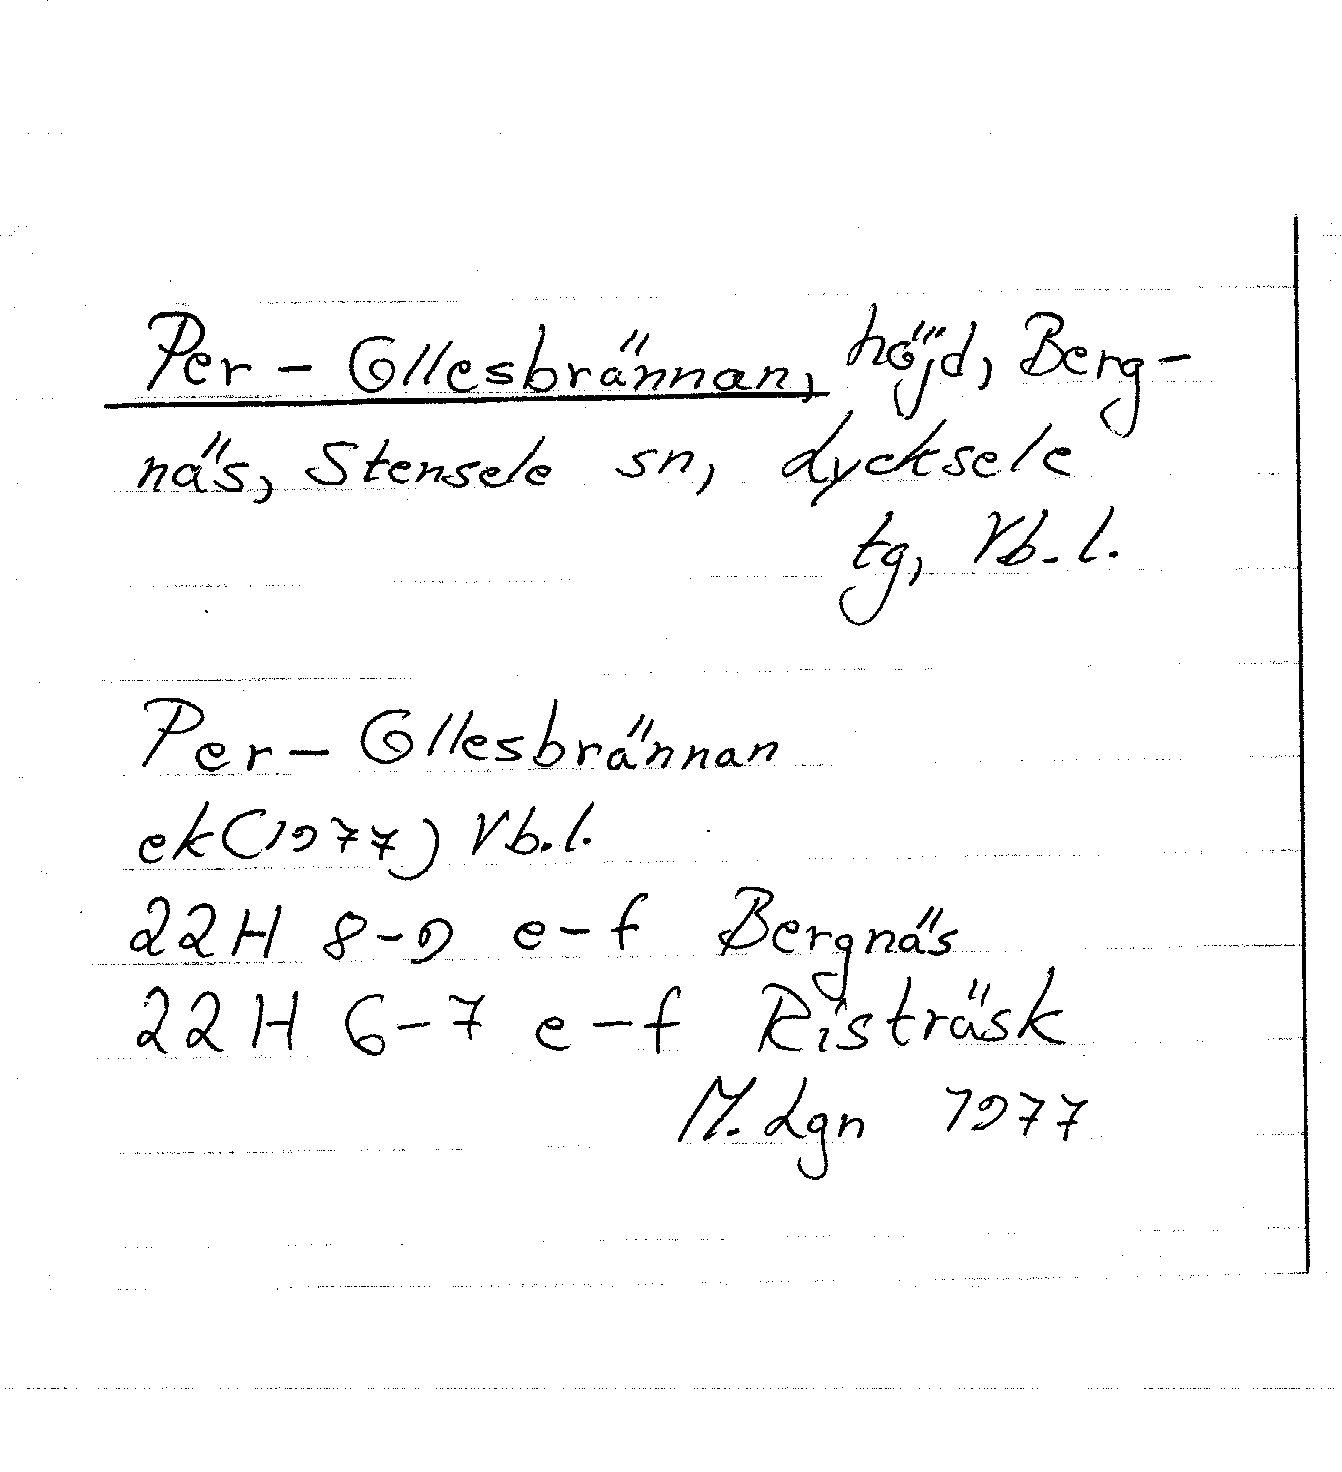 Per-Ollesbrännan, höjd, Berg-
näs, Stensele sn, Lycksele
tg, Vb.l.
Per-Ollesbrännan
ek(1977) Vb.l.
22H 8-9 e-f Bergnäs
22H 6-7 e-f Risträsk
M. Lgn 1977